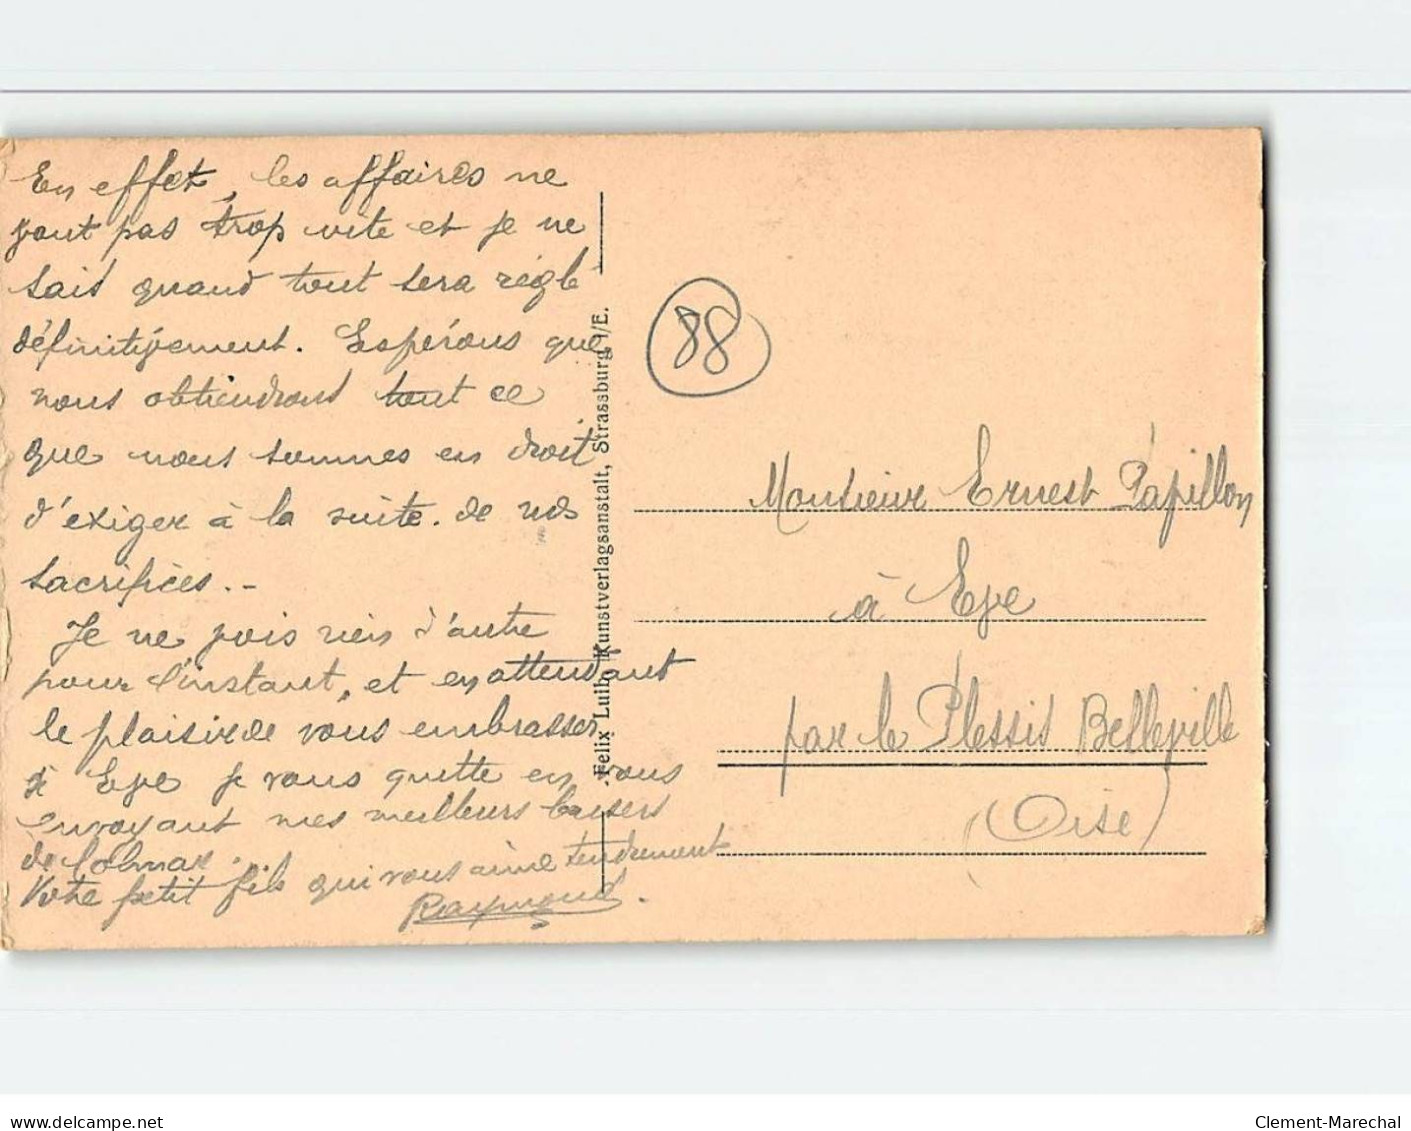 En effet, les affaires ne
vont pas trop vite et je ne
sais quand tout sera réglé
définitivement. Espérons que
nous obtiendrons tout ce
que nous sommes en droit
d'exiger à la suite de nos
sacrifices. -
Je ne vois rien d'autre
pour l'instant, et en attendant
le plaisir de vous embrasser
à Eve je vous quitte en vous
envoyant mes meilleurs baisers
de Colmar.
Votre petit fils qui vous aime tendrement
Raymond.
Felix Luib, Kunstverlagsanstalt, Strassburg i/E.
88
Monsieur Ernest Papillon
à Eve
par le Plessis Belleville
(Oise)
www.delcampe.net
Clement-Marechal